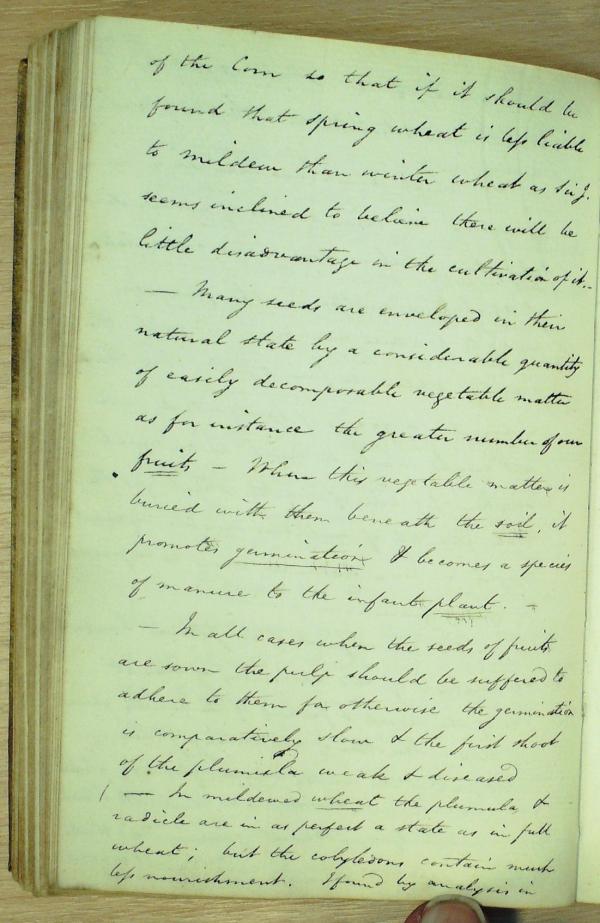 of the Corn so that if it should be
found that spring wheat is less liable
to mildew than winter wheat as Sir J.
seems inclined to believe there will be
little disadvantage in the cultivation of it.-
— Many seeds are enveloped in their
natural state by a considerable quantity
of easily decomposable vegetable matter
as for instance the greater number of our
fruits — When this vegetable matter is
buried with them beneath the soil, it
promotes germination & becomes a species
of manure to the infant plant. —
— In all cases when the seeds of fruits
are sown the pulp should be suffered to
adhere to them for otherwise the germination
is comparatively slow & the first shoot
of the plumula weak & diseased
— In mildewed wheat the plumula &
radicle are in as perfect a state as in full
wheat; but the cotyledons contain much
less nourishment. I found by analysis in